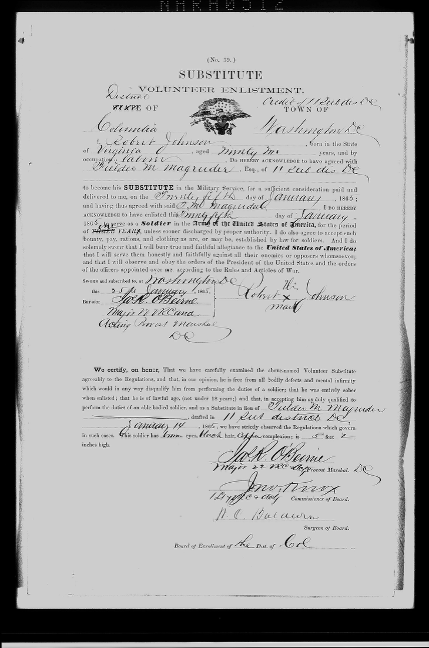 (No. 59.)
SUBSTITUTE
VOLUNTEER ENLISTMENT.
District Credited 11 Sub dis DC
STATE OF TOWN OF
Columbia Washington DC
I, Robert Johnson, born in the State
of Virginia, aged years, and by
occupation a laborer, Do hereby acknowledge to have agreed with
Fielder M Magruder, Esq., of 11 Sub dis DC
to become his SUBSTITUTE in the Military Service, for a sufficient consideration paid and
delivered to me, on the Twenty fifth day of January, 1865;
and having thus agreed with said F M Magruder, I do hereby
acknowledge to have enlisted this Twenty fifth day of January,
1865, to serve as a Soldier in the Army of the United States of America, for the period
of THREE YEARS, unless sooner discharged by proper authority. I do also agree to accept such
bounty, pay, rations, and clothing as are, or may be, established by law for soldiers. And I do
solemnly swear that I will bear true and faithful allegiance to the United States of America;
that I will serve them honestly and faithfully against all their enemies or opposers whomsoever;
and that I will observe and obey the orders of the President of the United States and the orders
of the officers appointed over me, according to the Rules and Articles of War.
Sworn and subscribed to, at Washington DC
this 25th January, 1865. His
Before Jas R. O'Beirne Robert x Johnson
Major 22 VRC and mark
Acting Provost Marshal
DC
We certify, on honor, That we have carefully examined the abovenamed Volunteer Substitute
agreeably to the Regulations, and that, in our opinion, he is free from all bodily defects and mental infirmity
which would in any way disqualify him from performing the duties of a soldier; that he was entirely sober
when enlisted; that he is of lawful age, (not under 18 years;) and that in accepting him as duly qualified to
perform the duties of an able-bodied soldier, and as a Substitute in lieu of Fielder M Magruder
drafted in 11 Sub district DC
January 14, 1865, we have strictly observed the Regulations which govern
in such cases. This soldier has eyes, black hair, complexion; is 5 feet 2
inches high.
Jas R O'Beirne
Major 22 VRC Provost Marshal. DC
Commissioner of Board.
Baldwin
Surgeon of Board.
Board of Enrollment of the Dist. of Col